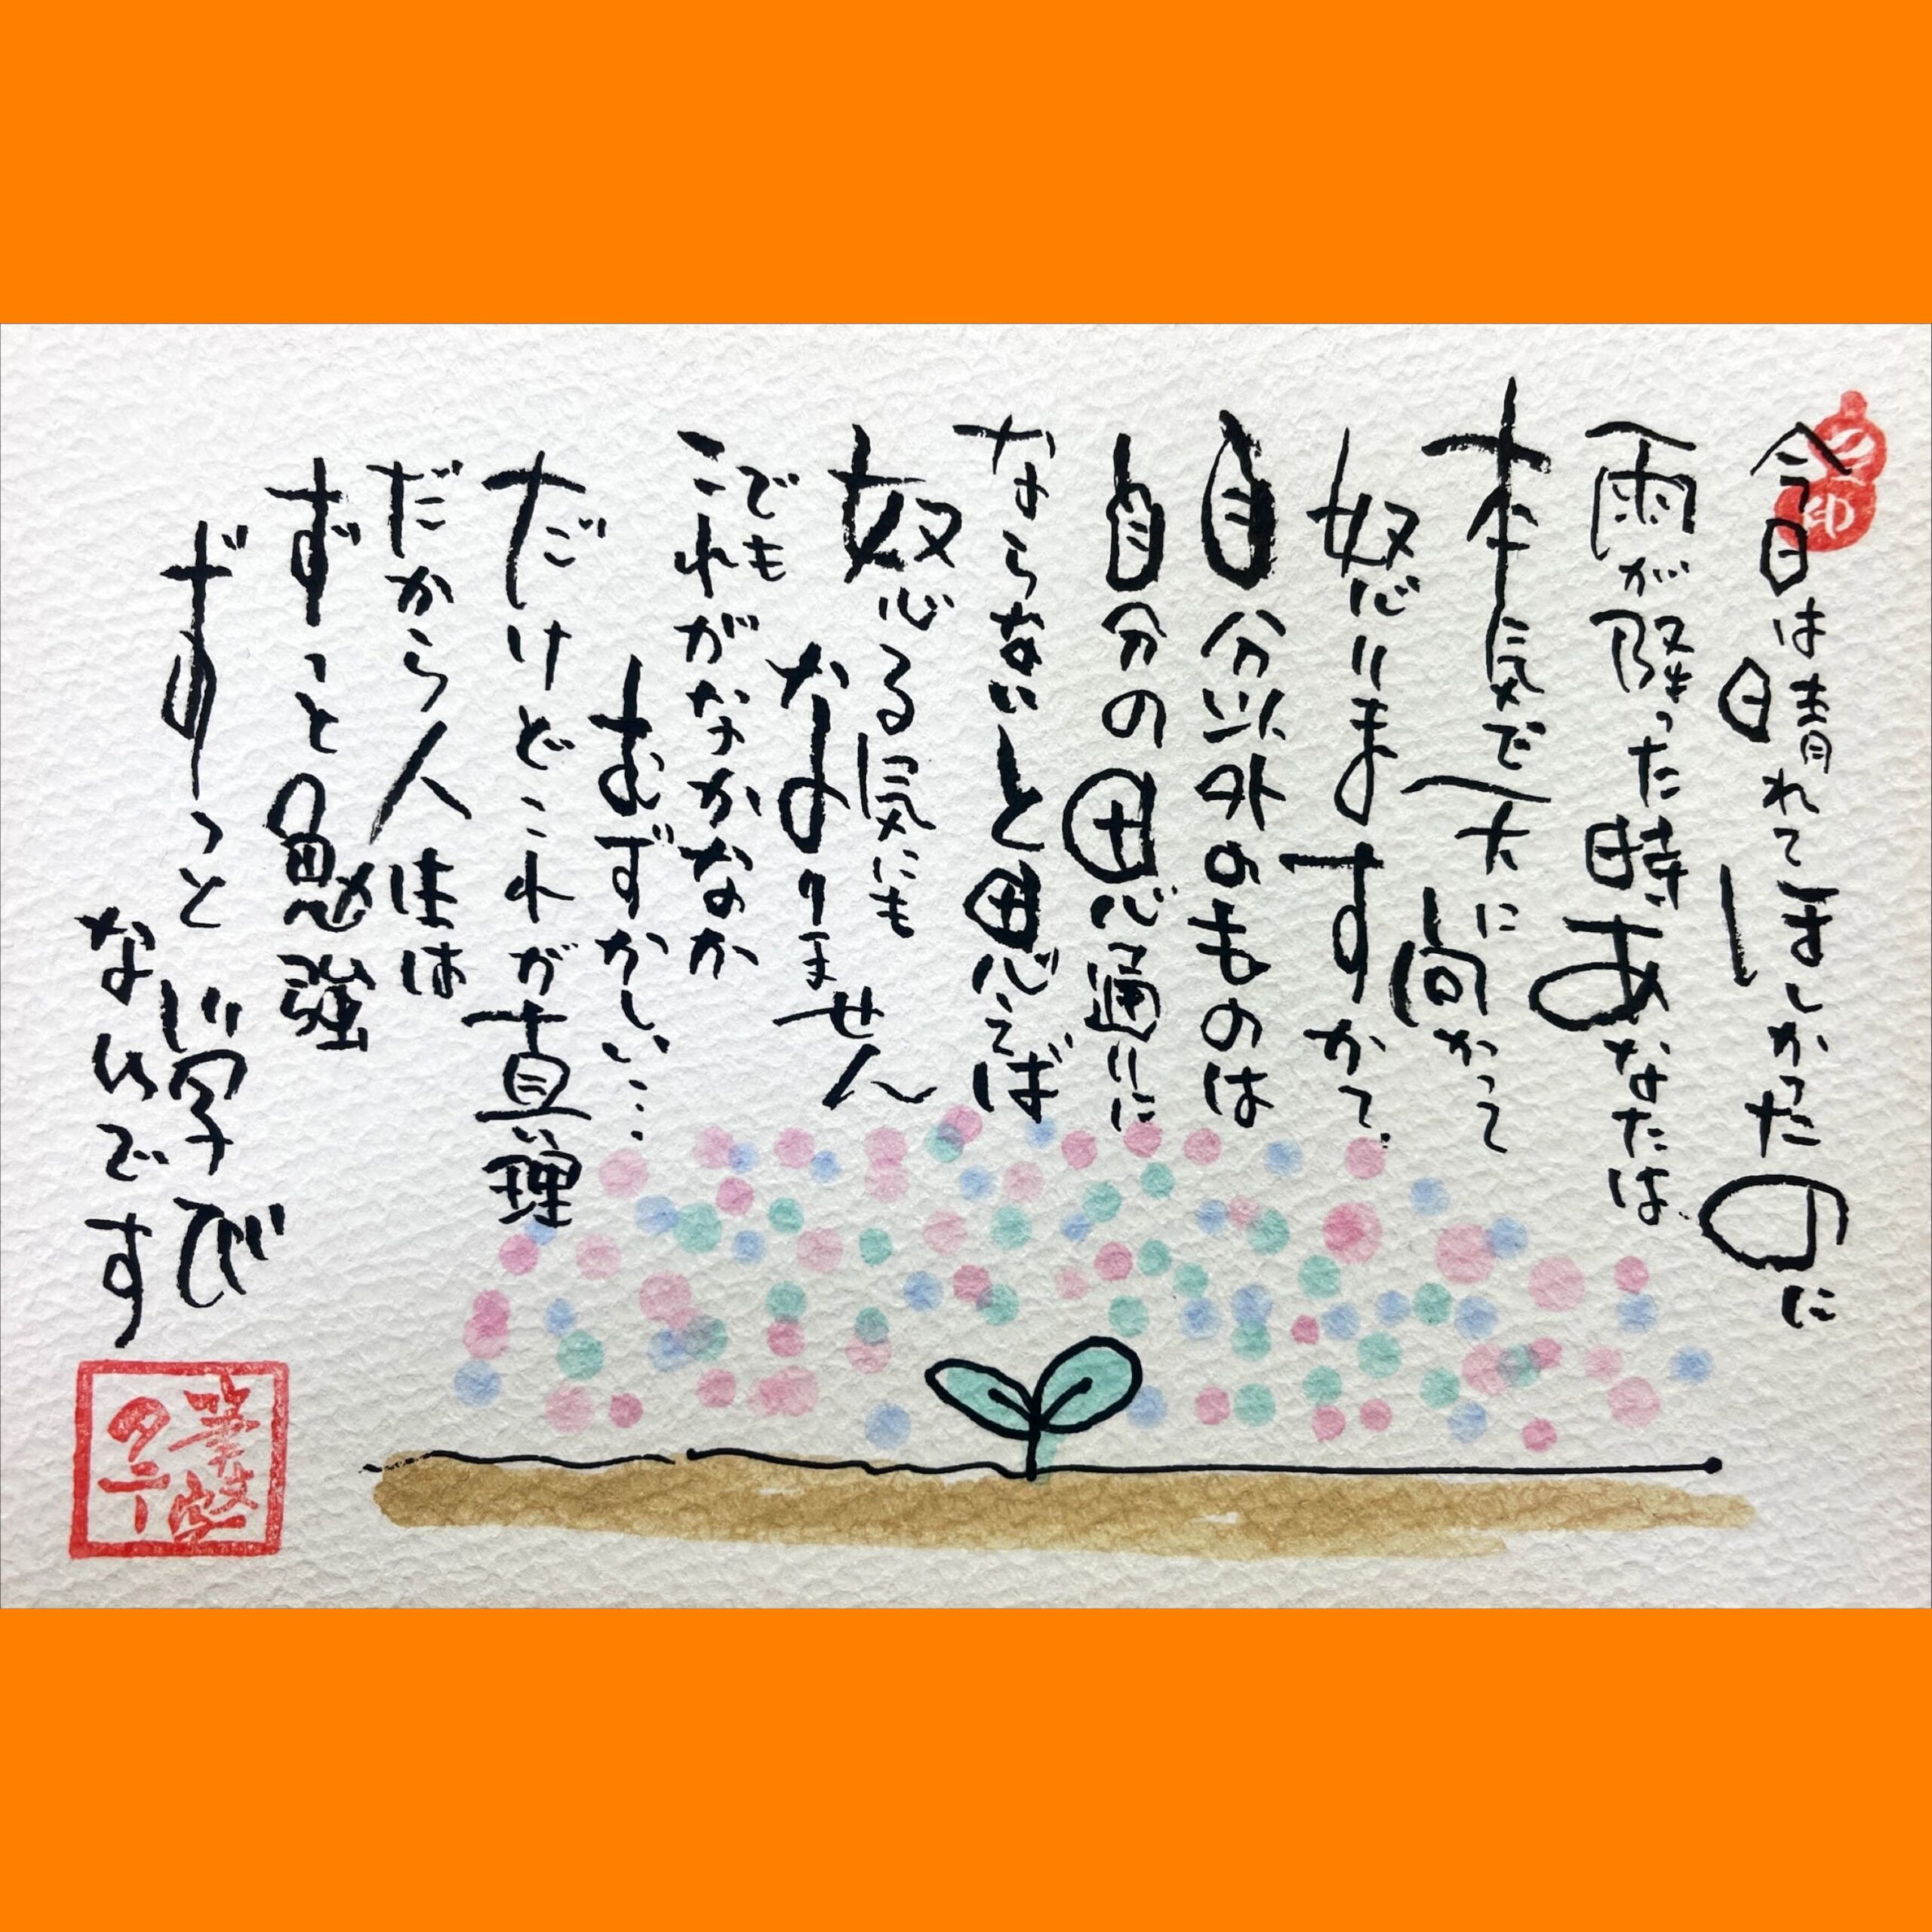 今日は晴れてほしかったのに
雨が降った時あなたは
本気で天に向かって
怒りますかて
自分以外のものは
自分の思い通りに
ならないと思えば
怒る気にも
なりません
でも
これがなかなか
むずかしい…
だけどこれが真理
だから人生は
ずっと勉強
ずーっと学び
なんです
筆文字
タニー